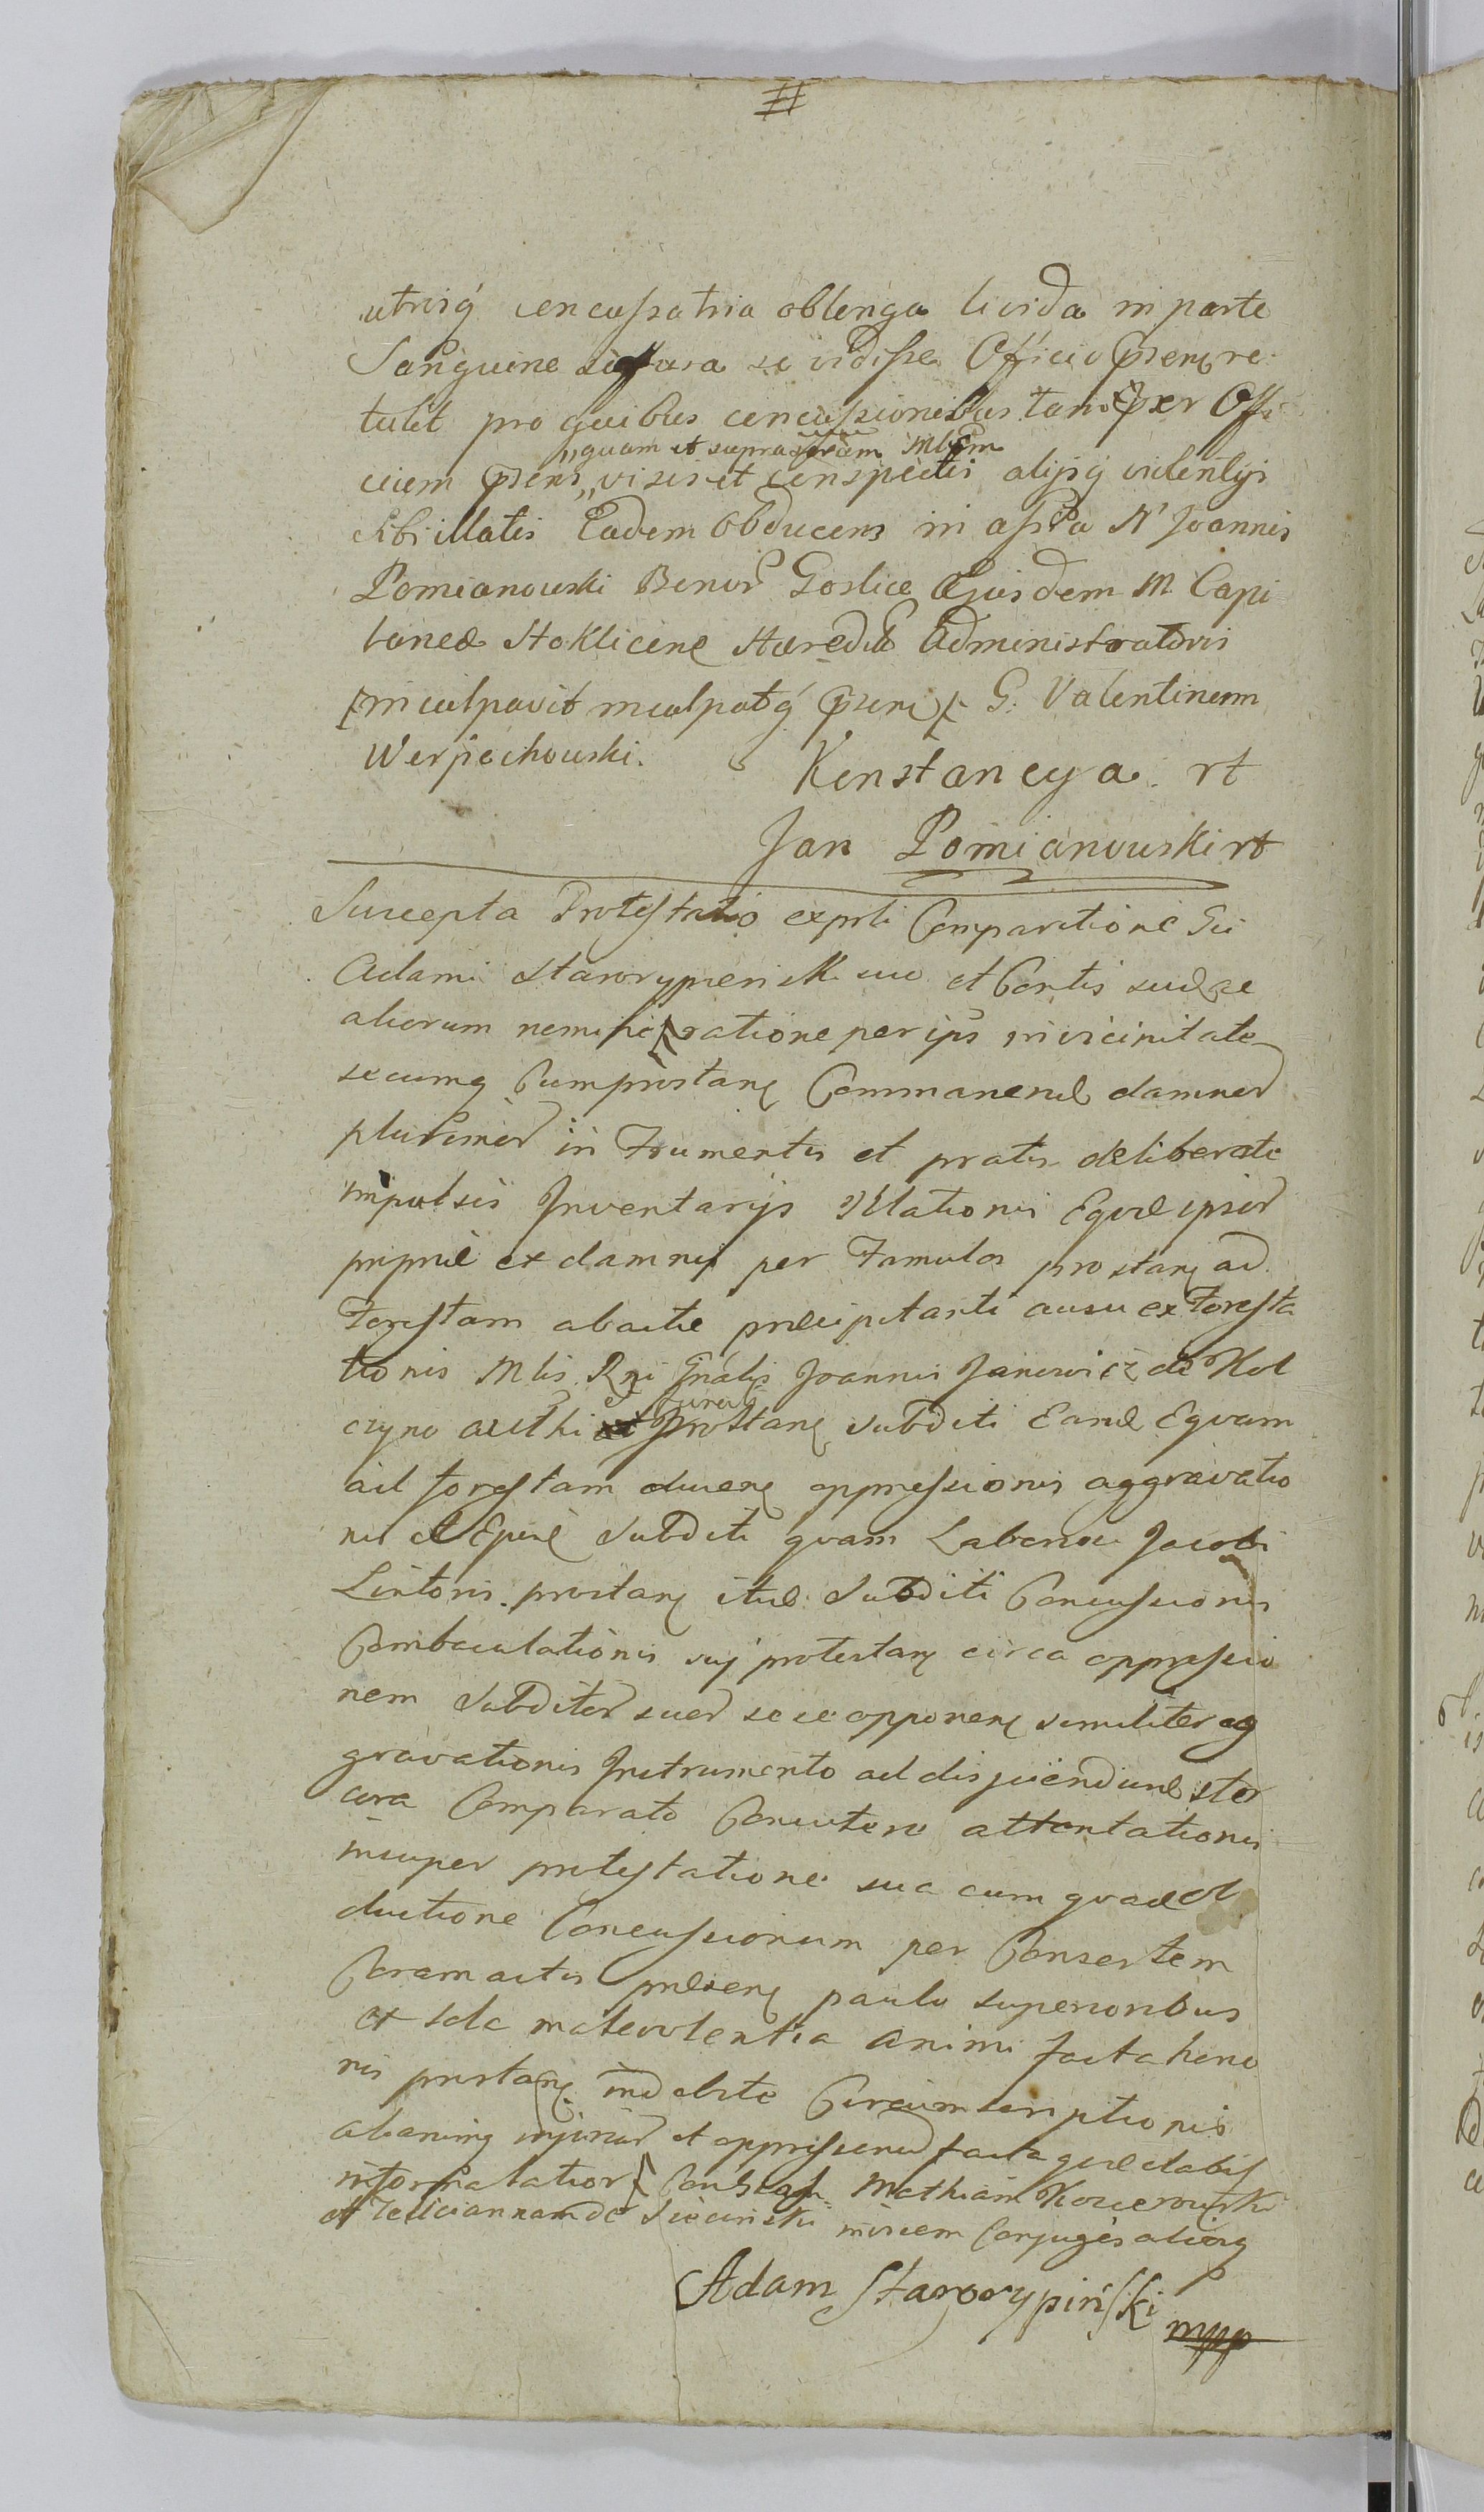 #
utrisq concussatria oblonga livida in parte
Sanguine se vidisse Officio Psenti re
tulit pro quibus concussionibus tam per Offi
„quam et suprascriptum Mlem
cium Psens „visis et conspectis alijsq violentijs
sibi illatis Eadem Obducens in assta N Joannis
Pomianowski Bonor Goslice Ejusdem M Capi
taneae Stoklicens Haered Administratoris
inculpavit inculpatq Psenti G. Valentinum
Wierpiechowski.
Konstancya rt
Jan Pomianowski rt
Suscepta Protestatio exprli Comparitione Gsi
Adami Starorypinski suo et Consortis suae ac
aliorum nomine ratione per ips in vicinitate
secumq Cumprostante Commanend damnor
plurimor in Frumentis et pratis deliberate
impulsis Inventarijs Illationis Equae ipsior
propriae ex damnis per Famulos prostantis ad
Forestam abactae praecipitanti ausu ex Foresta
tionis Mlis Rni Gnalis Joannis Janowicz de Kol
czyno
et Prostante subditi Eand Equam
ad forestam ducente oppressionis aggravatio
nis et Subditi quam Laboriosi Jacobi
prostantis itid Subditi Concussionis
Combaculationis sui protestantis circa oppressio
nem Subditor suor sese opponentis similiter ag
gravationis Instrumento ad disjiciendum ster
cora Comparato Concutere attentationis
insuper protestatione sua cum quadam ob
ductione Concussionum per Consortem
Coram actis praesentibus paulo superioribus
ex sola malevolentia animi facta hono
ris prostantis indebite Circumscriptionis
aliarumq injuriar et oppressionum facta quae dabit
informatior Mathiam Koszerowski
et Feliciannam de Siecinski invicem Conjuges aliosq
Adam Starorypiński mpp